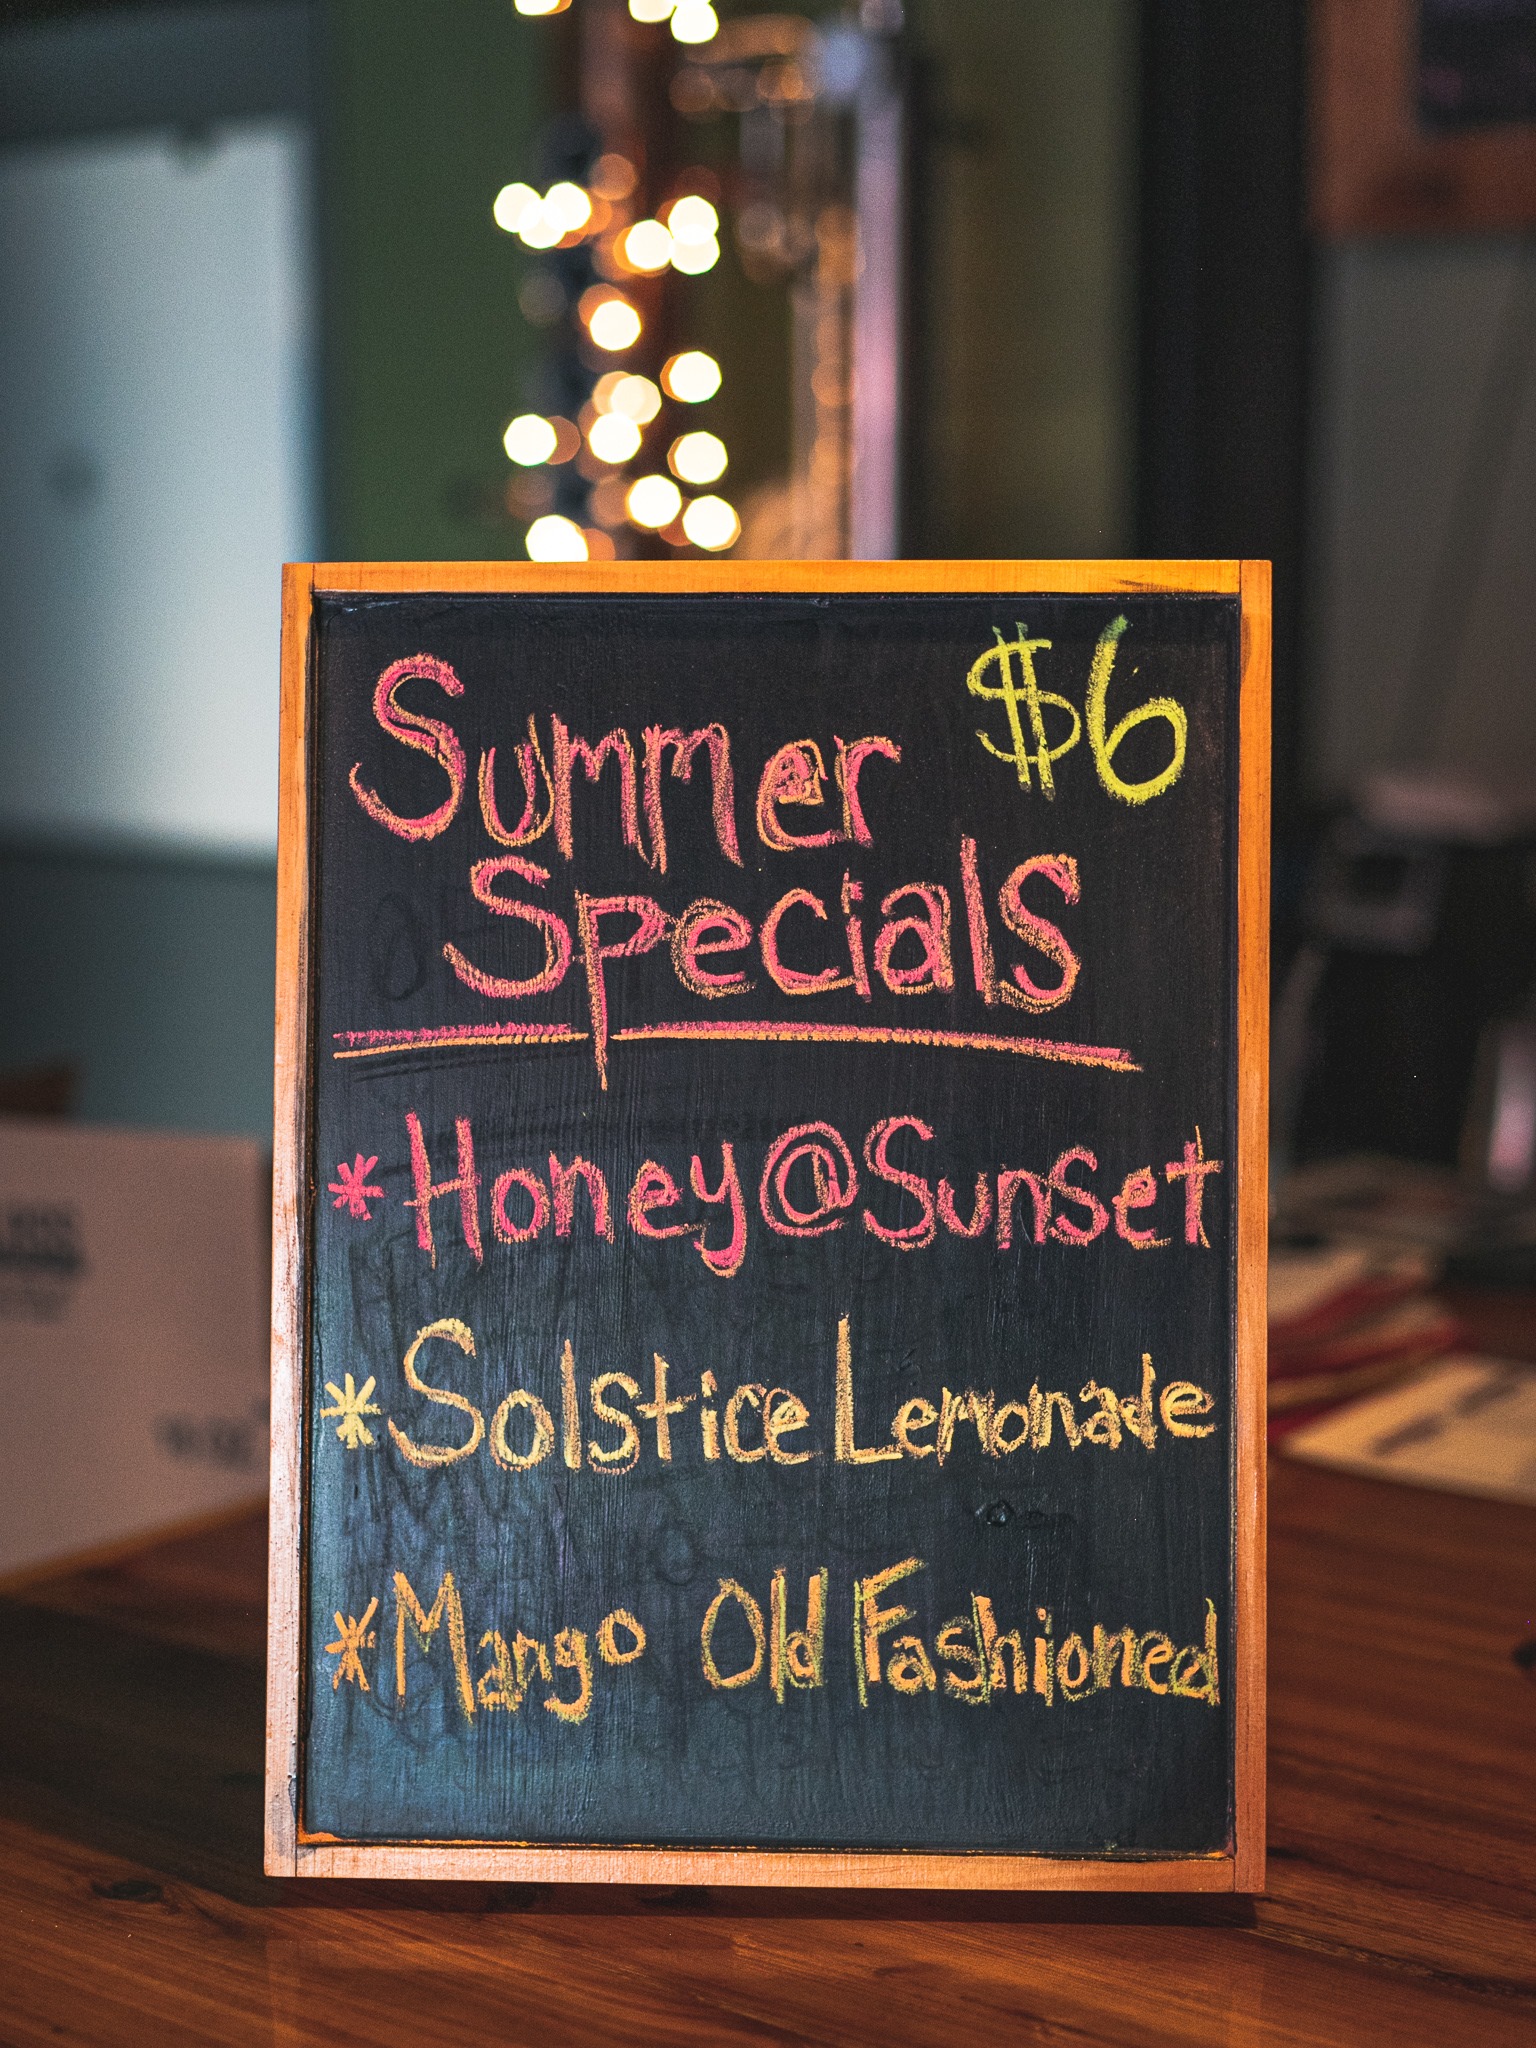 Summer $6
Specials
* Honey@Sunset
* Solstice Lemonade
* Mango Old Fashioned